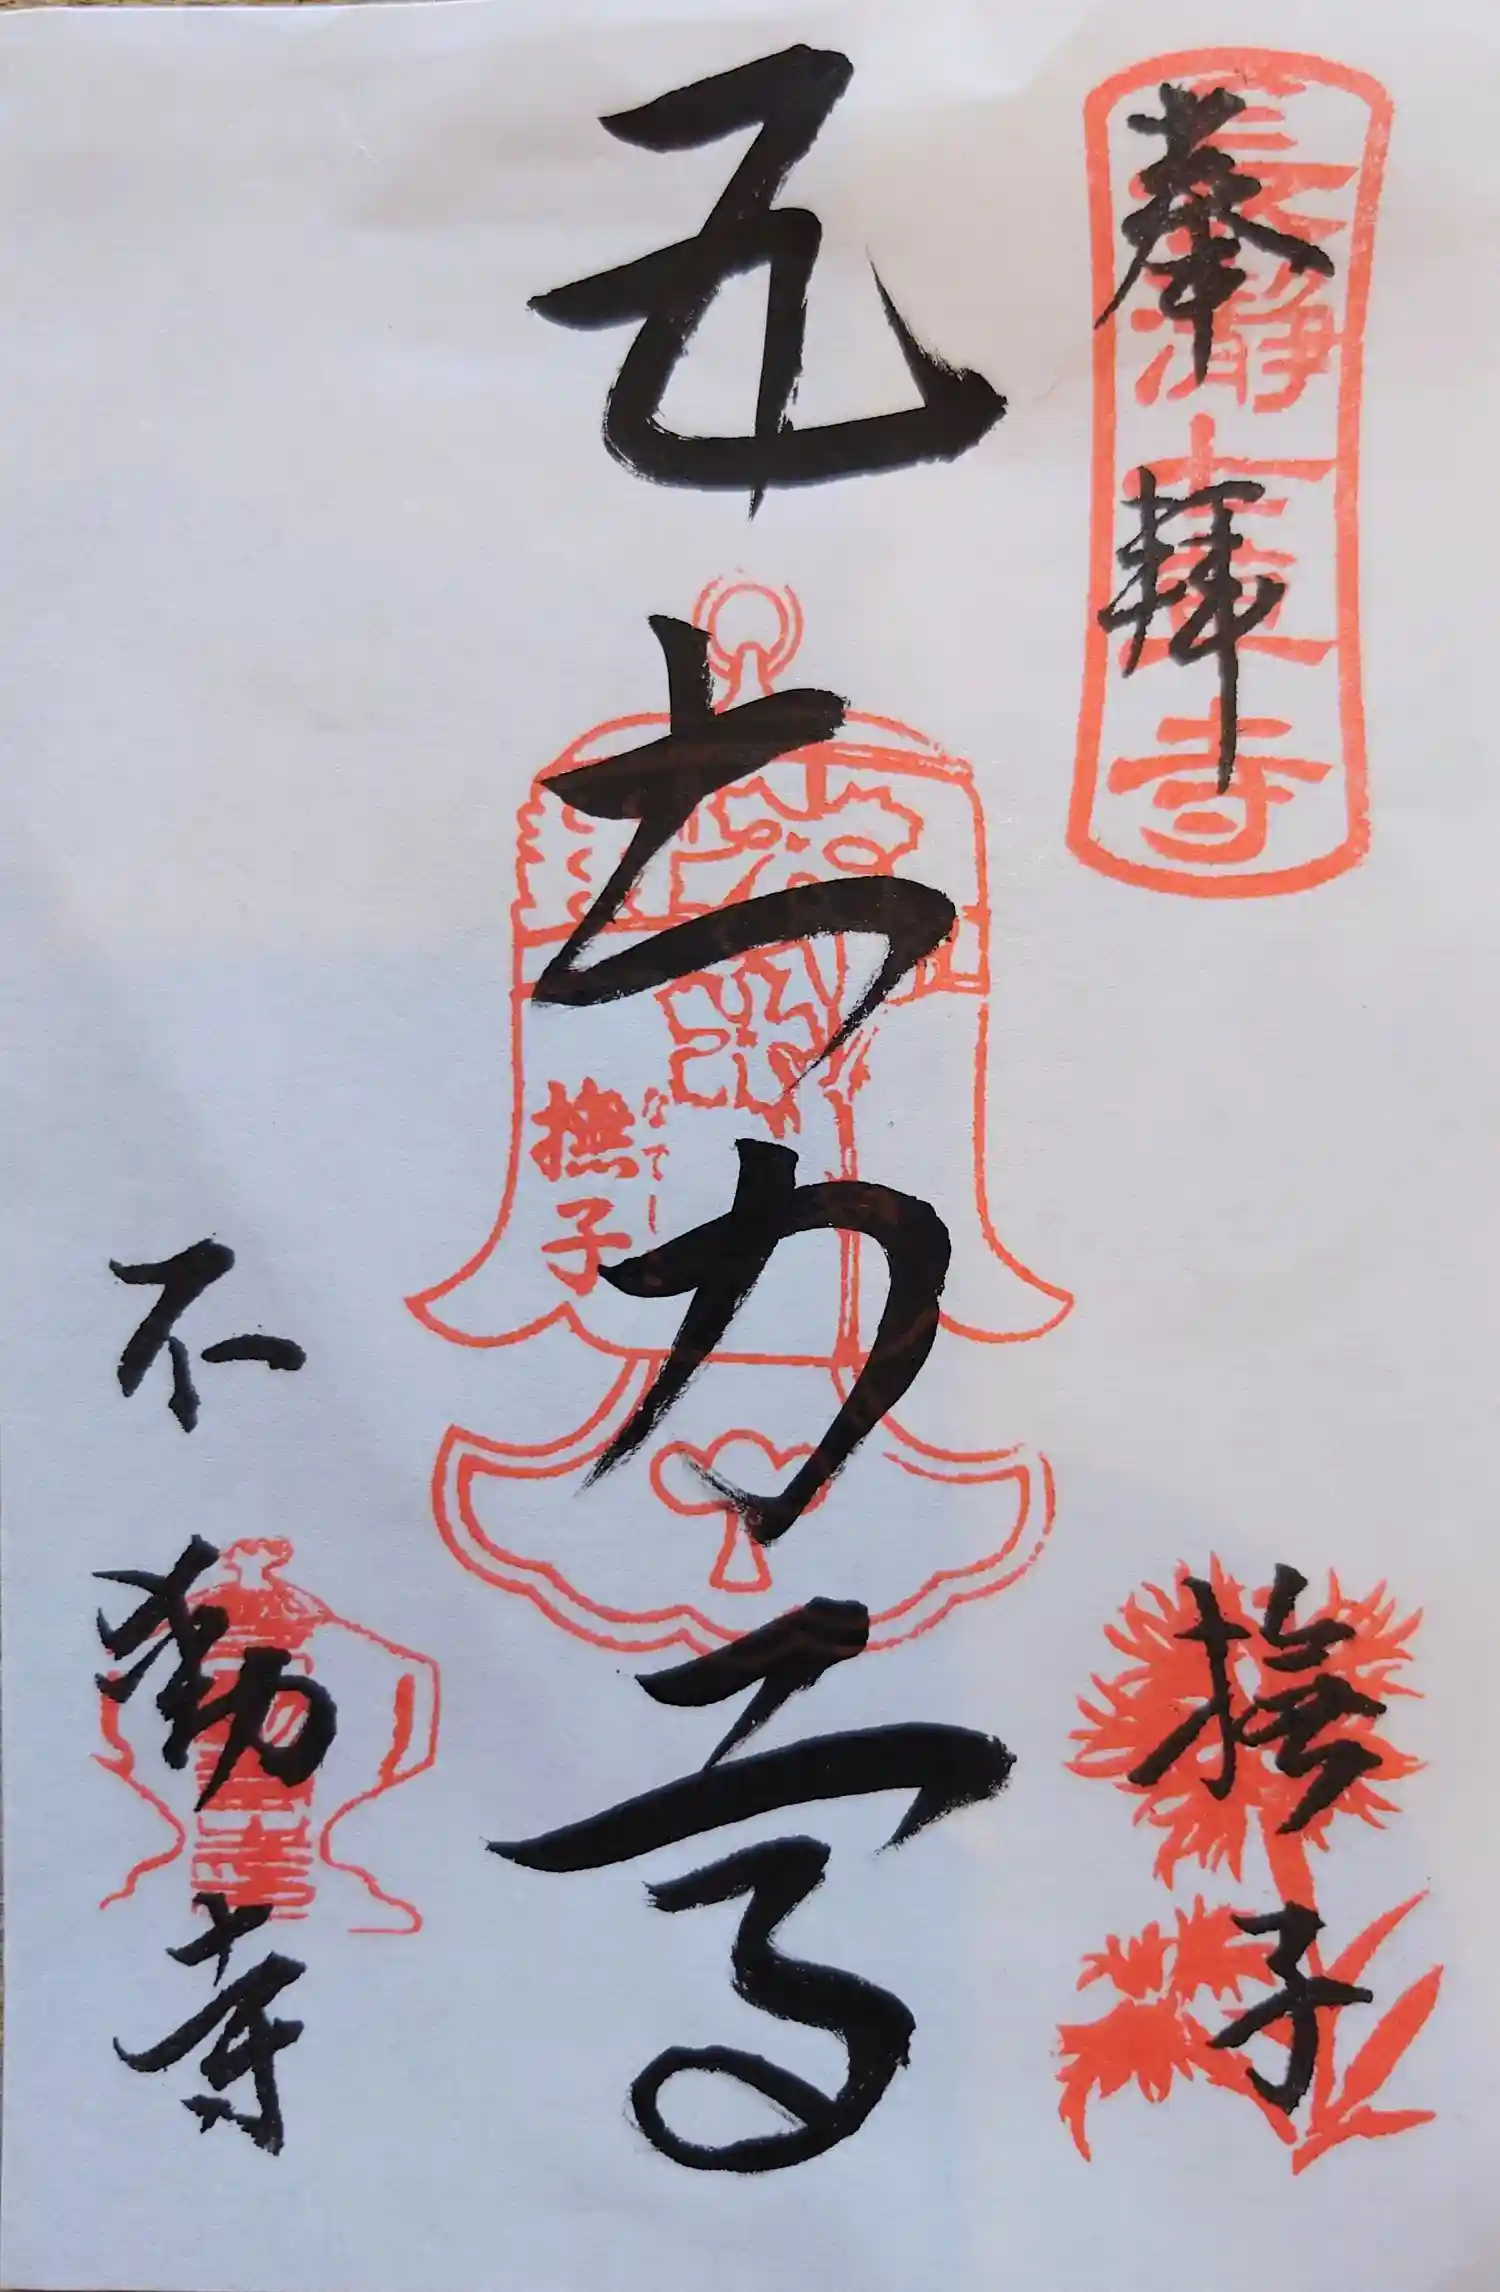 奉拝
長瀞七草寺
撫子
五大力尊
撫子
なでし
不動寺